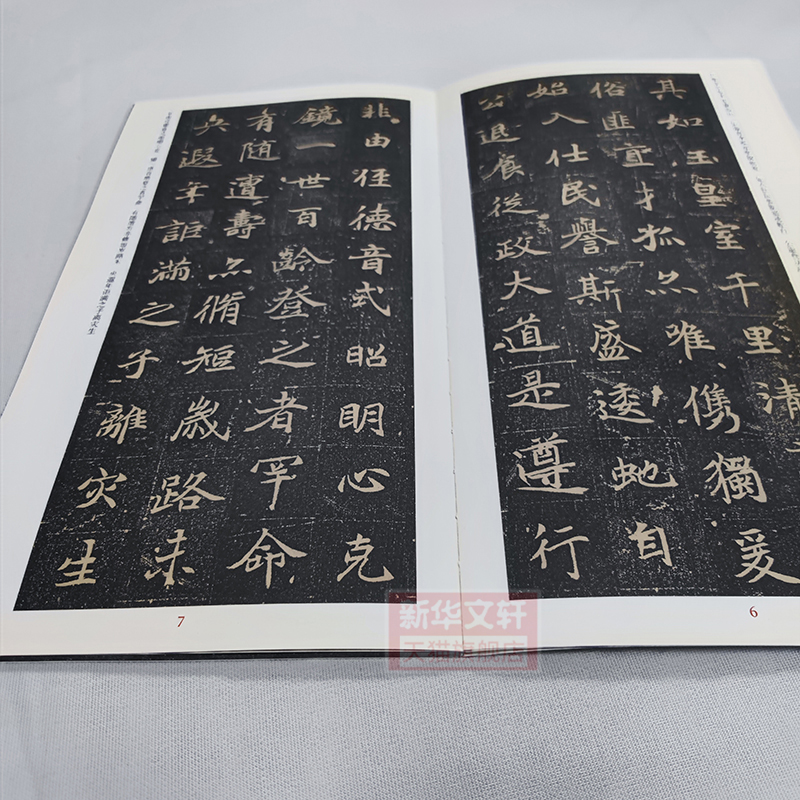 其如玉皇室千里清
俗匪直才孤亦唯儁獨爰
始入仕民譽斯盛逶虵自
公退食從政大道是遵行
6
非由徃德音式昭明心克
鏡一世百齡登之者罕命
有隨遭壽亦脩短歲路未
央遐年詎滿之子離灾生
7
新华文轩
天猫旗舰店